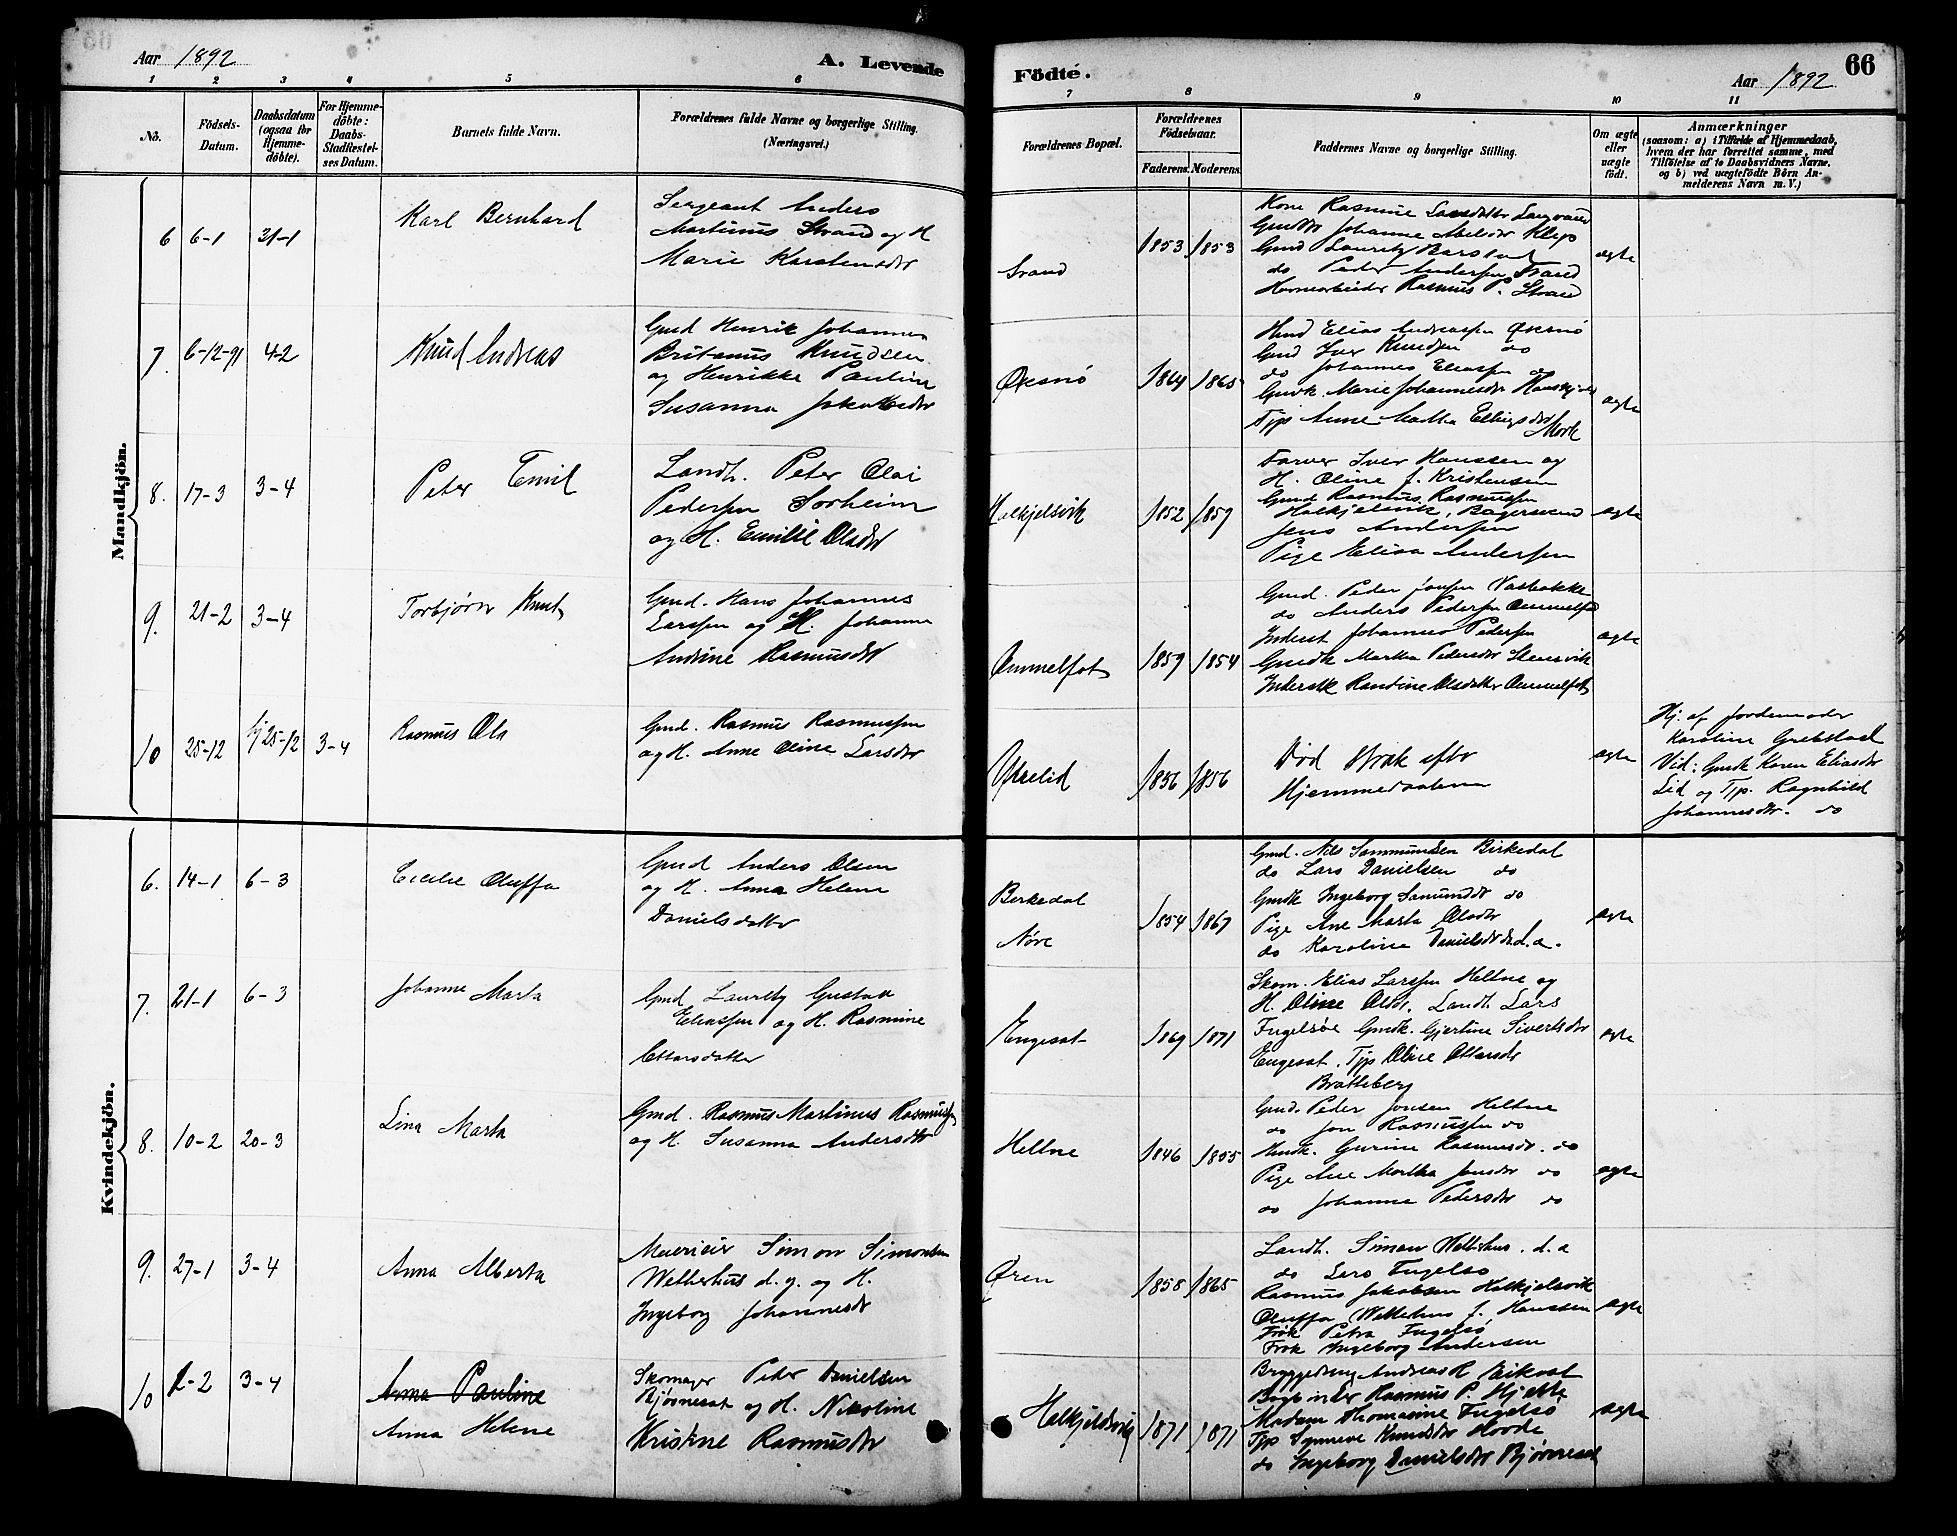 Aar 1892
A. Levende
1 2 3 4 5 6
No.
Födsels-Datum.
Daabsdatum (ogsaa for Hjemmedöbte).
For Hjemmedöbte: Daabs-Stadfestelses Datum.
Barnets fulde Navn.
Forældrenes fulde Navne og borgerlige Stilling.
(Næringsvei.)
Mandkjön.
6 6-1 31-1 Karl Bernhard
Sergeant Anders
Martinus Strand og H
Marie Karstensdtr
7. 6-12-91 4-2 Knud Andreas
Gmd Henrik Johannes
Britanus Knudsen
og Henrikke Pauline
Susanna Jakobsdtr
8. 17-3 3-4 Peter Emil
Landh. Peter Olai
Pedersen Sorheim
og H. Emilie Olsdtr
9. 21-2 3-4 Torbjørn Knut
Gmd. Hans Johannes
Larssen og H. Johanna
Andrine Rasmusdtr
10 25-12 hj 25-12 3-4 Rasmus Ola
Gmd. Rasmus Rasmussen
og H. Anne Oline Larsdtr
Kvindekjön.
6. 14-1 6-3 Cecilie Oluffa
Gmd Anders Olsen
og H. Anna Helene
Danielsdatter
7. 21-1 6-3 Johanne Marta
Gmd Lauritz Gustav
Eliassen og H. Rasmine
Ottarsdatter
8. 10-2 20-3 Lina Marta
Gmd. Rasmus Martinus Rasmussen
og H. Susanna Andersdtr
9. 27-1 3-4 Anna Alberta
Simon Simonsen
Welhehus d. y. og H.
Ingeborg Johannesdtr
10 2-2 3-4 Anna Pauline
Anna Helene
Skomager Peter Danielsen
Bjørneset og H. Nikoline
Kristine Rasmusdtr
Födte.
Aar 1892
66
7 8 9 10 11
Forældrenes Bopæl.
Forældrenes Födselsaar.
Faderens. Moderens.
Faddernes Navne og borgerlige Stilling.
Om ægte eller uægte födt.
Anmærkninger
(saasom: a) i Tilfælde af Hjemmedaab,
hvem der har forrettet samme, med
Tilföielse af to Daabsvidners Navne,
og b) ved uægtefödte Börn An-
melderens Navn m. V.)
Strand 1853 1853
Kone Rasmine Larsdatter
Johanne Abelsdtr Klep
Gmd Lauritz Barstad
do Peder Andersen Strand
Rasmus P. Strand
ægte
Øksnø 1864 1865
Elias Andreassen Øksnø
Gmd Iver Knudsen do
do Johannes Eliassen do
Gmdk. Marie Johannesdtr
Tjp Anne Martha Ellingsdtr Mork
ægte
Halkjelsvik 1852 1859
Farver Iver Hanssen og
H. Oline f. Kristensen
Gmd Rasmus Rasmussen
Halkjelsvik, Bagersvend
Jens Andersen
Pige Elisa Andersen
ægte
Ammelfot 1859 1854
Gmd. Peder Jonsen Vasbakke
do Anders Pedersen Aammelfot
Inderst Johannes Pedersen
Gmdk Martha Pedersdtr Stensvik
Inderstk Randine Olsdatter Aammelfot
ægte
Ytrelid 1856 1856
Død strak efter
Hjemmedaaben
ægte
Hj. af Jordemoder
Karoline Grebstad
Vid: Gmdk Karen Eliasdtr
Lid og Tjp. Ragnhild
Johannesdtr. do
Birkedal
Nøre 1854 1867
Gmd. Nils Sammundsen Birkedal
do Lars Danielsen do
Gmdk Ingeborg Samundsdtr do
Pige Ane Marta Olsdtr
do Karoline Danielsdtr d. a.
ægte
Engeset 1869 1871
Skom. Elias Larssen Heltne og
H. Oline Olsdtr. Landh. Lars
Fugelsøe Gmdk. Gjertine Sivertsdtr
Engeset. Tjp Oline Ottarsdtr
Bratteberg
ægte
Heltne 1846 1855
Gmd. Peder Jonsen Heltne
do Jon Rasmussen do
Gmdk. Gurine Rasmusdtr. do
Pige Ane Martha Jonsdtr do
do Johanne Pedersdtr do
ægte
Øren 1858 1865
Landh. Simon Welhehus. d. a
do Lars Fugelsø
Rasmus Jakobsen Halkjelsvik
Oluffa Welhehus f. Hanssen
Frøk Petra Fugelsø
Frøk Ingeborg Andersen
ægte
Halkjelsvig 1871 1871
Andreas R
Rasmus P. Hjelte
Madam Thomasine Fugelsø
Tjp Synneve Knudsdtr Hovde
do Ingeborg Danielsdtr Bjørneset
ægte